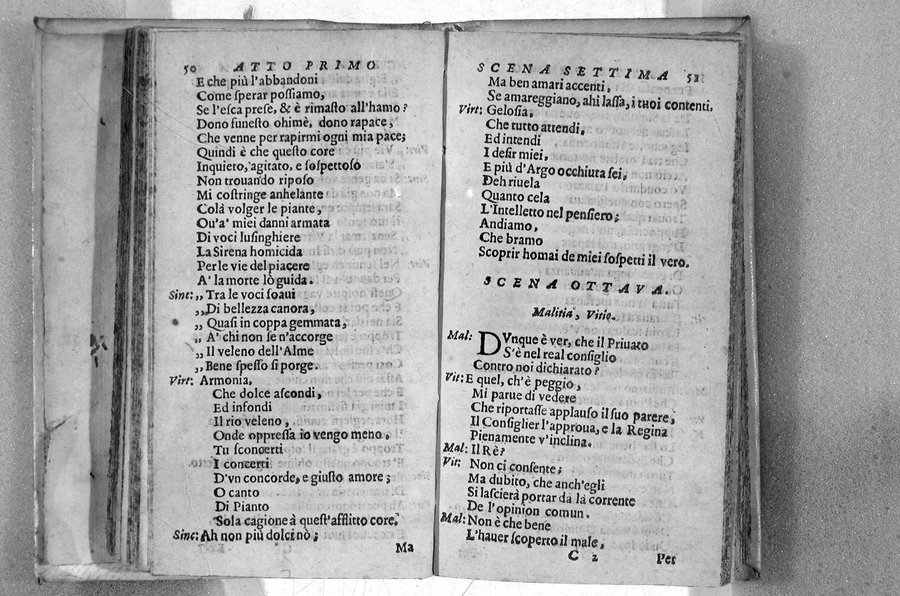 50 ATTO PRIMO
E che più l'abbandoni
Come sperar possiamo,
Se l'esca prese, & è rimasto all'hamo?
Dono funesto ohimè, dono rapace,
Che venne per rapirmi ogni mia pace;
Quindi è che questo core
Inquieto, agitato, e sospettoso
Non trouando riposo
Mi costringe anhelante
Colà volger le piante,
Ou'a' miei danni armata
Di voci lusinghiere
La Sirena homicida
Per le vie del piacere
A' la morte lò guida.
Sinc: „ Tra le voci soaui
„ Di bellezza canora,
„ Quasi in coppa gemmata,
„ A' chi non se n'accorge
„ Il veleno dell'Alme
„ Bene spesso si porge.
Virt: Armonia,
Che dolce ascondi,
Ed infondi
Il rio veleno,
Onde oppressa io vengo meno.
Tu sconcerti
I concerti
D'vn concorde, e giusto amore;
O canto
Di Pianto
Sola cagione à quest'afflitto core.
Sinc: Ah non più dolci nò;
Ma
SCENA SETTIMA 51
Ma ben amari accenti,
Se amareggiano, ahi lassa, i tuoi contenti.
Virt: Gelosia,
Che tutto attendi,
Ed intendi
I desir miei,
E più d'Argo occhiuta sei,
Deh riuela
Quanto cela
L'Intelletto nel pensiero;
Andiamo,
Che bramo
Scoprir homai de miei sospetti il vero.
SCENA OTTAVA.
Malitia, Vitio.
Mal: DVnque è ver, che il Priuato
S'è nel real consiglio
Contro noi dichiarato?
Vit: E quel, ch'è peggio,
Mi parue di vedere
Che riportasse applauso il suo parere;
Il Consiglier l'approua, e la Regina
Pienamente v'inclina.
Mal: Il Rè?
Vit: Non ci consente;
Ma dubito, che anch'egli
Si lascierà portar da la corrente
De l'opinion comun.
Mal: Non è che bene
L'hauer scoperto il male,
C 2 Per